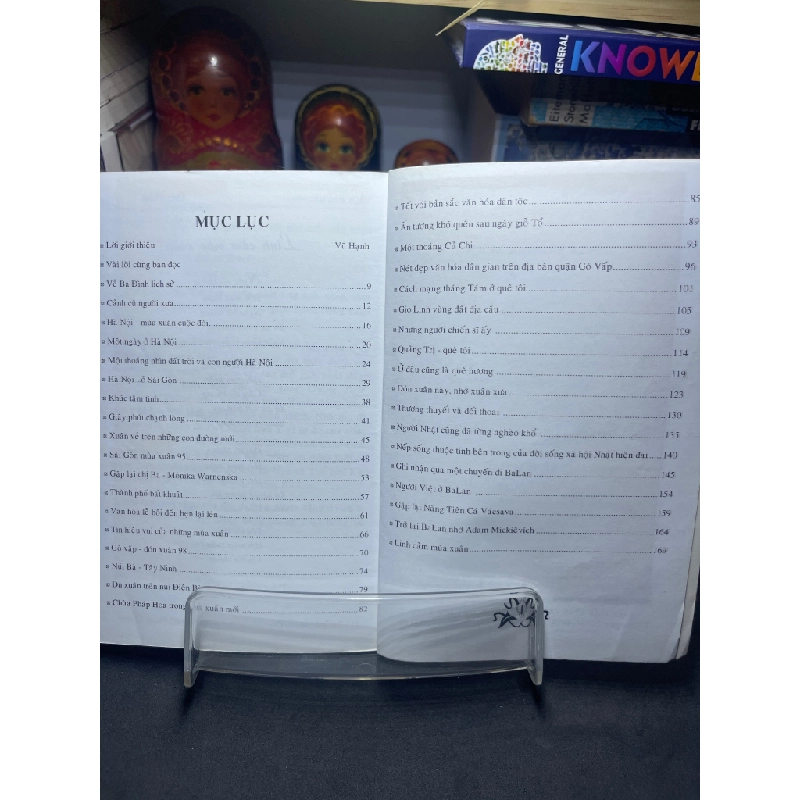 GENERAL KNOWL
MỤC LỤC
Lời giới thiệu Vũ Hạnh
Vài lời cùng bạn đọc
Về Ba Đình lịch sử 9
Cảnh cũ người xưa 12
Hà Nội - mùa xuân cuộc đời 16
Một ngày ở Hà Nội 20
Một thoáng nhìn đất trời và con người Hà Nội 24
Hà Nội Sài Gòn 29
Khúc tâm tình 38
Giây phút chạnh lòng 41
Xuân về trên những con đường mới 45
Sài Gòn mùa xuân 95 48
Gặp lại chị Ba - Monika Warnenska 53
Thành phố bất khuất 57
Văn hóa lễ hội đến hẹn lại lên 61
Tín hiệu vui của những mùa xuân 66
Gò vấp - đón xuân 98 70
Núi Bà - Tây Ninh 74
Du xuân trên núi Điện Bà 79
Chùa Pháp Hoa trong xuân mới 82
Tết với bản sắc văn hóa dân tộc 85
Ấn tượng khó quên sau ngày giỗ Tổ 89
Một thoáng Củ Chi 93
Nét đẹp văn hóa dân gian trên địa bàn quận Gò Vấp 96
Cách mạng tháng Tám ở quê tôi 101
Gio Linh vùng đất địa đầu 105
Những người chiến sĩ ấy 109
Quảng Trị - quê tôi 114
Ở đâu cũng là quê hương 119
Đón xuân này, nhớ xuân xưa 123
Thương thuyết và đối thoại 130
Người Nhật cũng đã từng nghèo khổ
Nếp sống thuộc tính bên trong của đời sống xã hội Nhật hiện đại 140
Ghi nhận qua một chuyến đi BaLan 145
Người Việt ở BaLan 154
Gặp lại Nàng Tiên Cá Vacsava 159
Trở lại Ba Lan nhớ Adam Mickievich 164
Linh cảm mùa xuân